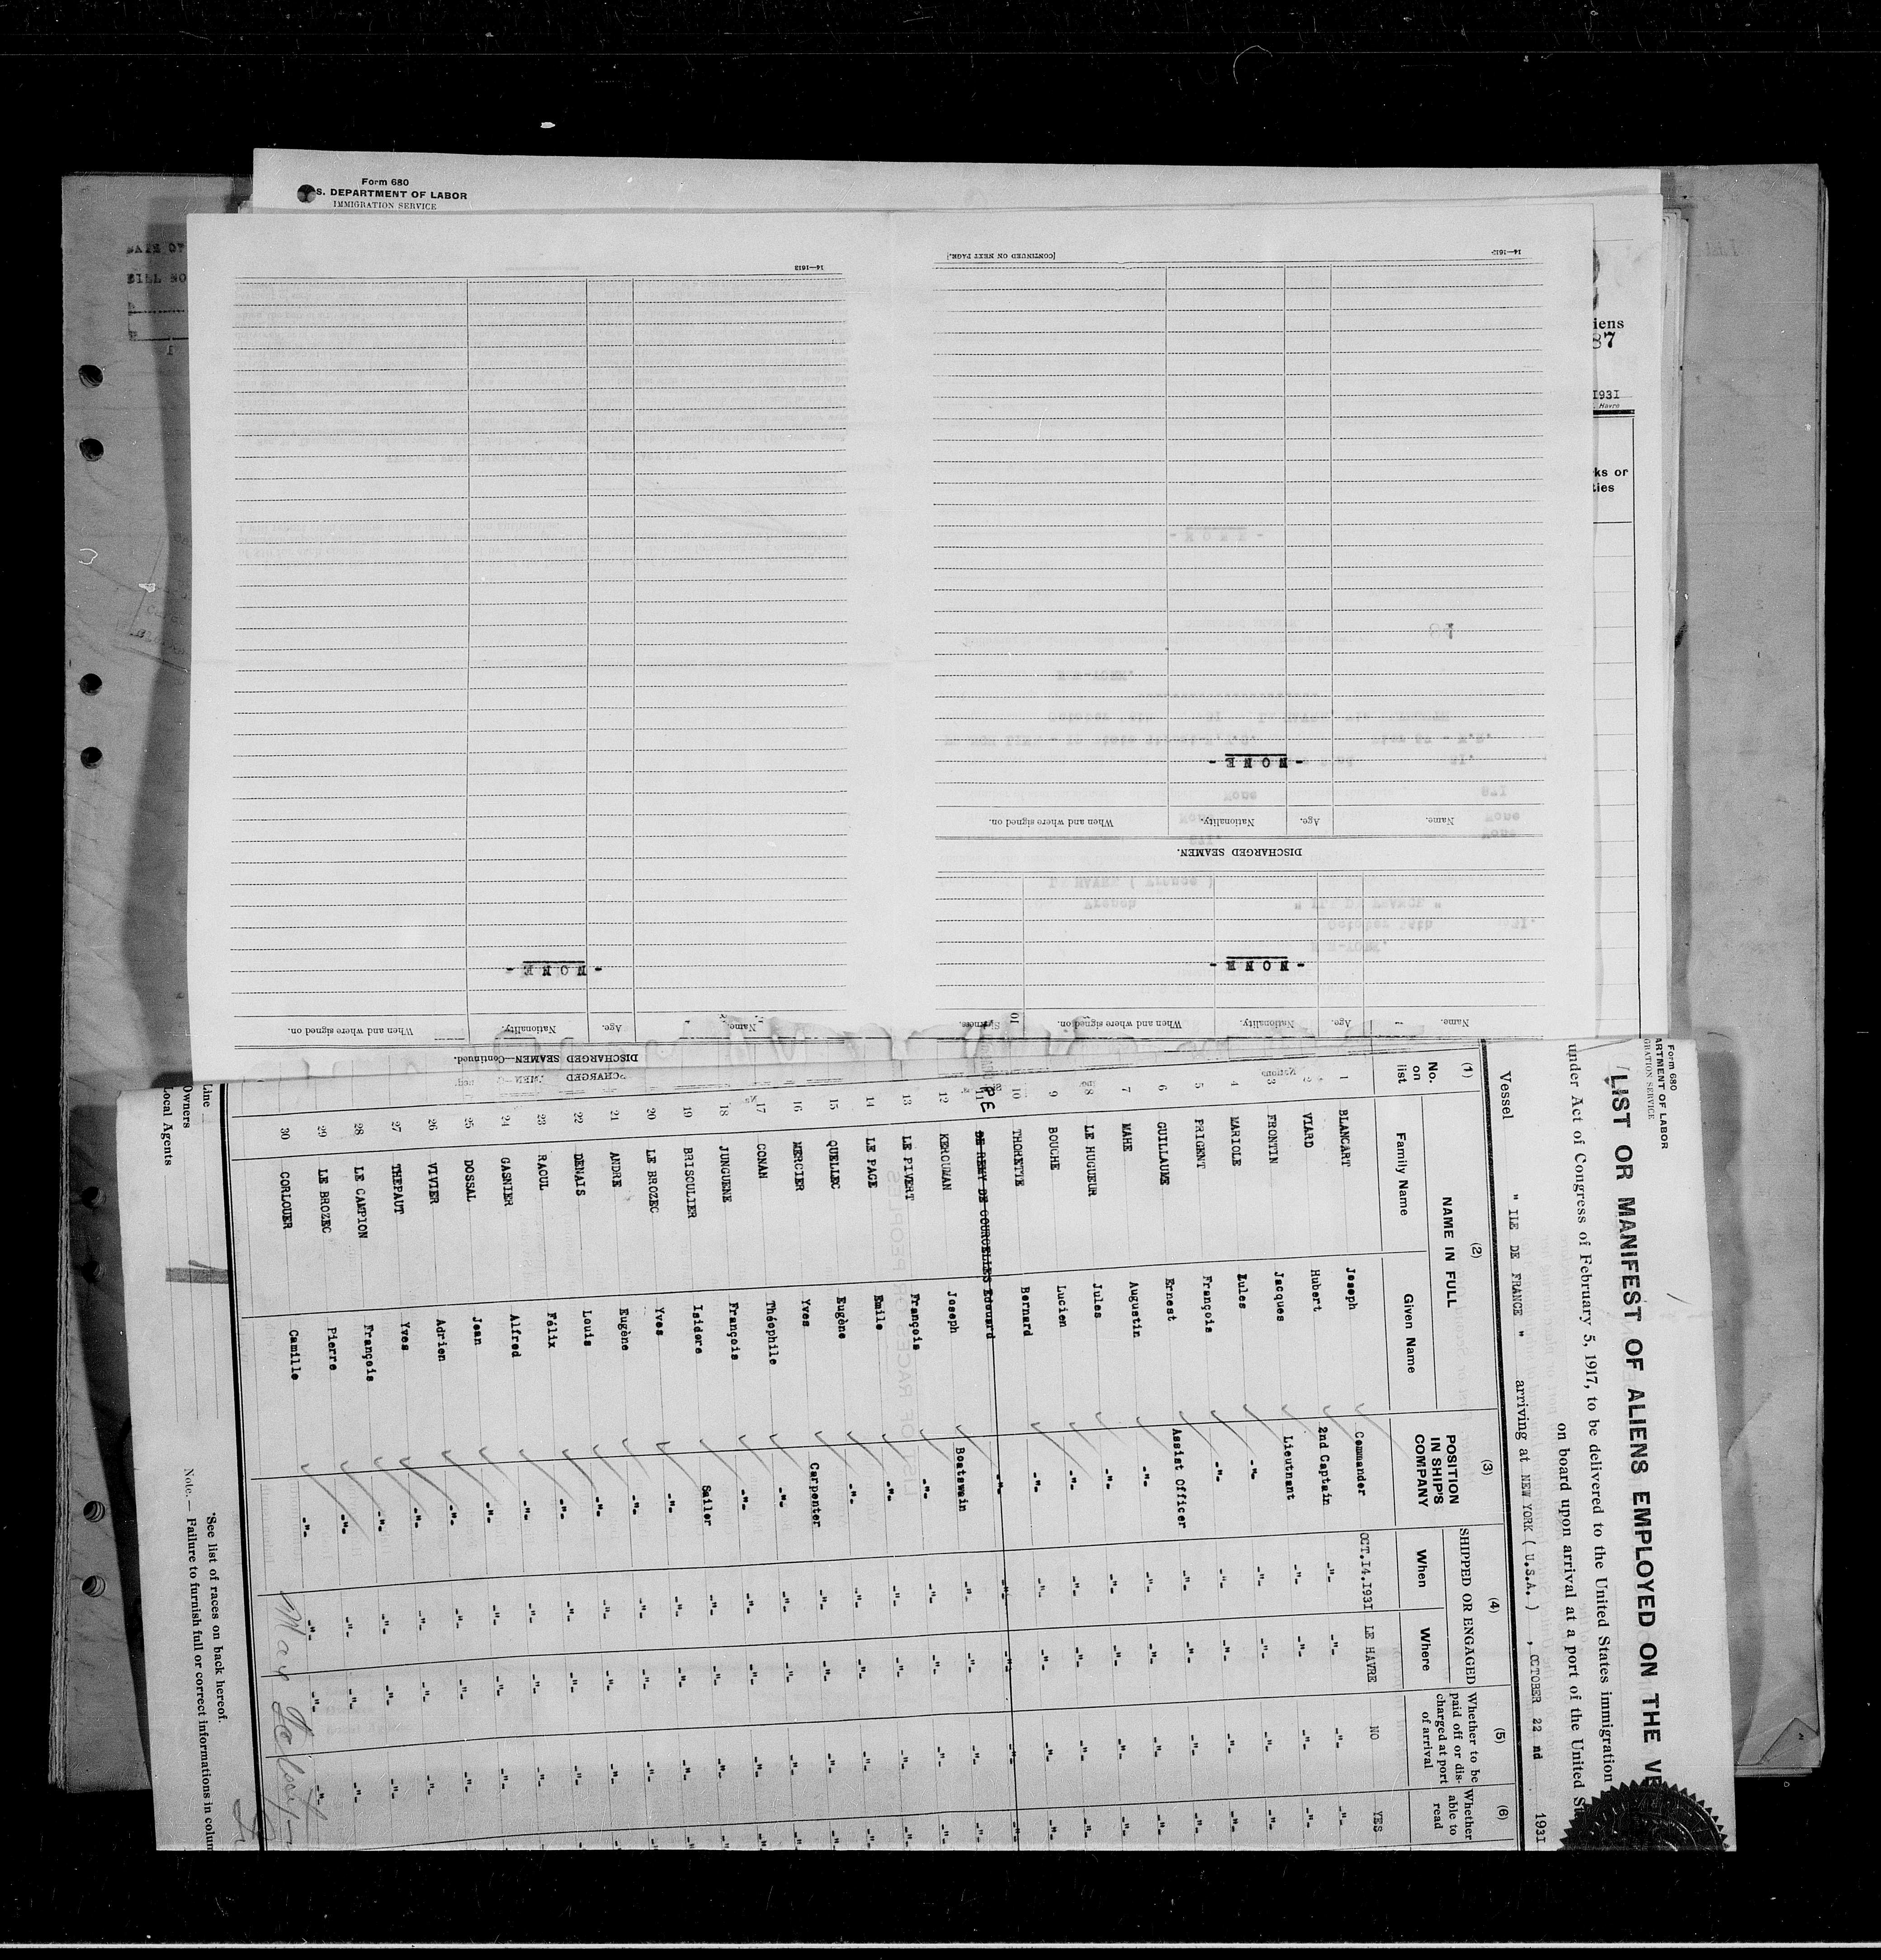 Form 680
S. DEPARTMENT OF LABOR
IMMIGRATION SERVICE
DATE OF
BILL NO
iens
87
1931
Havre
ks or
ties
DISCHARGED SEAMEN—Continued.
Name. Age. Nationality. When and where signed on.
- NONE -
14—1613
Name. Age. Nationality. When and where signed on.
- NONE -
DISCHARGED SEAMEN.
Name. Age. Nationality. When and where signed on.
- NONE -
[CONTINUED ON NEXT PAGE.]
Form 680
ARTMENT OF LABOR
GRATION SERVICE
LIST OR MANIFEST OF ALIENS EMPLOYED ON THE VE
under Act of Congress of February 5, 1917, to be delivered to the United States immigration
on board upon arrival at a port of the United St
Vessel " ILE DE FRANCE " arriving at NEW YORK ( U.S.A. ) , OCTOBER 22 nd 1931
(1) (2) (3) (4) (5) (6)
No. on list
NAME IN FULL
Family Name Given Name
POSITION IN SHIP'S COMPANY
SHIPPED OR ENGAGED
When Where
Whether to be paid off or discharged at port of arrival
Whether able to read
1 BLANCART Joseph Commander OCT.14.1931 LE HAVRE NO YES
2 VIARD Hubert 2nd Captain -"- -"- -"- -"-
3 FRONTIN Jacques Lieutnant -"- -"- -"- -"-
4 MARIOLE Zules -"- -"- -"- -"- -"-
5 PRIGENT François -"- -"- -"- -"- -"-
6 GUILLAUME Ernest Assist Officer -"- -"- -"- -"-
7 MAHE Augustin -"- -"- -"- -"- -"-
8 LE HUGUEUR Jules -"- -"- -"- -"- -"-
9 BOUCHE Lucien -"- -"- -"- -"- -"-
10 THOMETTE Bernard -"- -"- -"- -"- -"-
11 DE REMY DE COURCELLES Edouard -"- -"- -"- -"- -"-
12 KEROUMAN Joseph Boatswain -"- -"- -"- -"-
13 LE PIVERT François -"- -"- -"- -"- -"-
14 LE PAGE Emile -"- -"- -"- -"- -"-
15 QUELLEC Eugène -"- -"- -"- -"- -"-
16 MERCIER Yves Carpenter -"- -"- -"- -"-
17 CONAN Théophile -"- -"- -"- -"- -"-
18 JUNGUENE François -"- -"- -"- -"- -"-
19 BRISCULIER Isidore Sailor -"- -"- -"- -"-
20 LE BROZEC Yves -"- -"- -"- -"- -"-
21 ANDRE Eugène -"- -"- -"- -"- -"-
22 DENAIS Louis -"- -"- -"- -"- -"-
23 RAOUL Félix -"- -"- -"- -"- -"-
24 GASNIER Alfred -"- -"- -"- -"- -"-
25 DOSSAL Jean -"- -"- -"- -"- -"-
26 VIVIER Adrien -"- -"- -"- -"- -"-
27 THEPAUT Yves -"- -"- -"- -"- -"-
28 LE CAMPION François -"- -"- -"- -"- -"-
29 LE BROZEC Pierre -"- -"- -"- -"- -"-
30 CORLOUER Camille -"- -"- -"- -"-
Line
Owners
Local Agents
*See list of races on back hereof.
Note. — Failure to furnish full or correct informations in colum